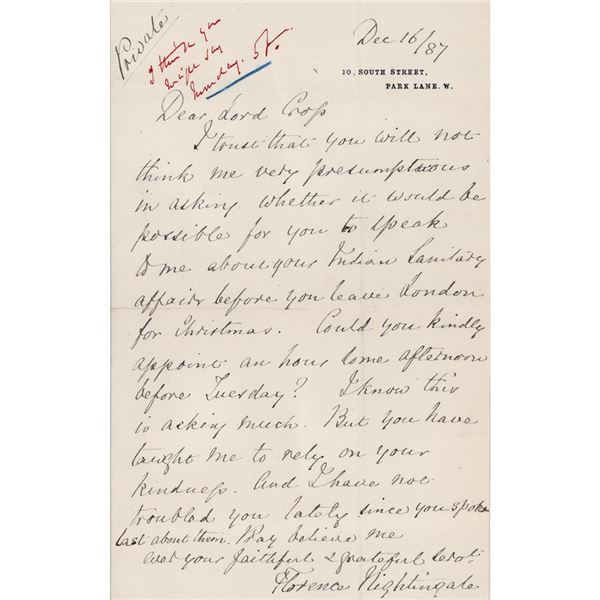 Private
I think you
might say
Sunday. 5
Dec 16/87
10, SOUTH STREET,
PARK LANE. W.
Dear Lord Cross
I trust that you will not
think me very presumptuous
in asking whether it would be
possible for you to speak
to me about your Indian Sanitary
affairs before you leave London
for Christmas. Could you kindly
appoint an hour some afternoon
before Tuesday? I know this
is asking much. But you have
taught me to rely on your
kindness. And I have not
troubled you lately since you spoke
last about them. Pray believe me
ever your faithful & grateful servt.
Florence Nightingale